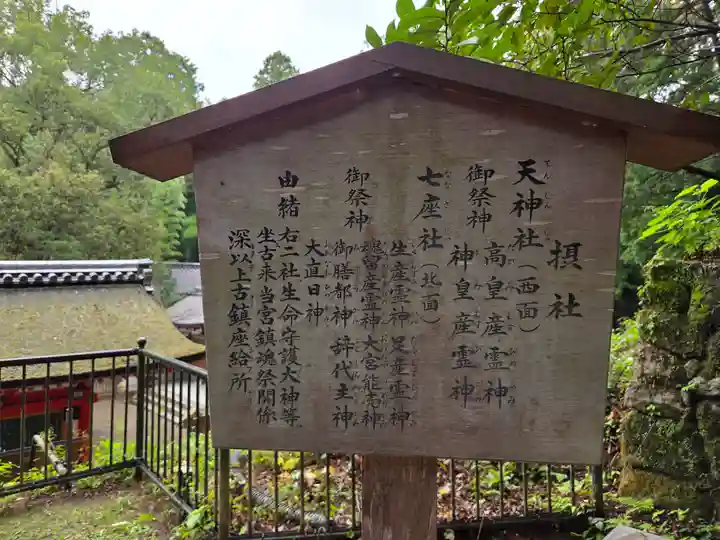 摂社
天神社（西面）
てんじんしゃ
御祭神 高皇産霊神
神皇産霊神
七座社（北面）
御祭神 生産霊神 足産霊神
魂留産霊神 大宮能売神
御膳都神 辞代主神
大直日神
由緒 右二社生命守護大神等
坐古来当宮鎮魂祭関係
深以上古鎮座給所